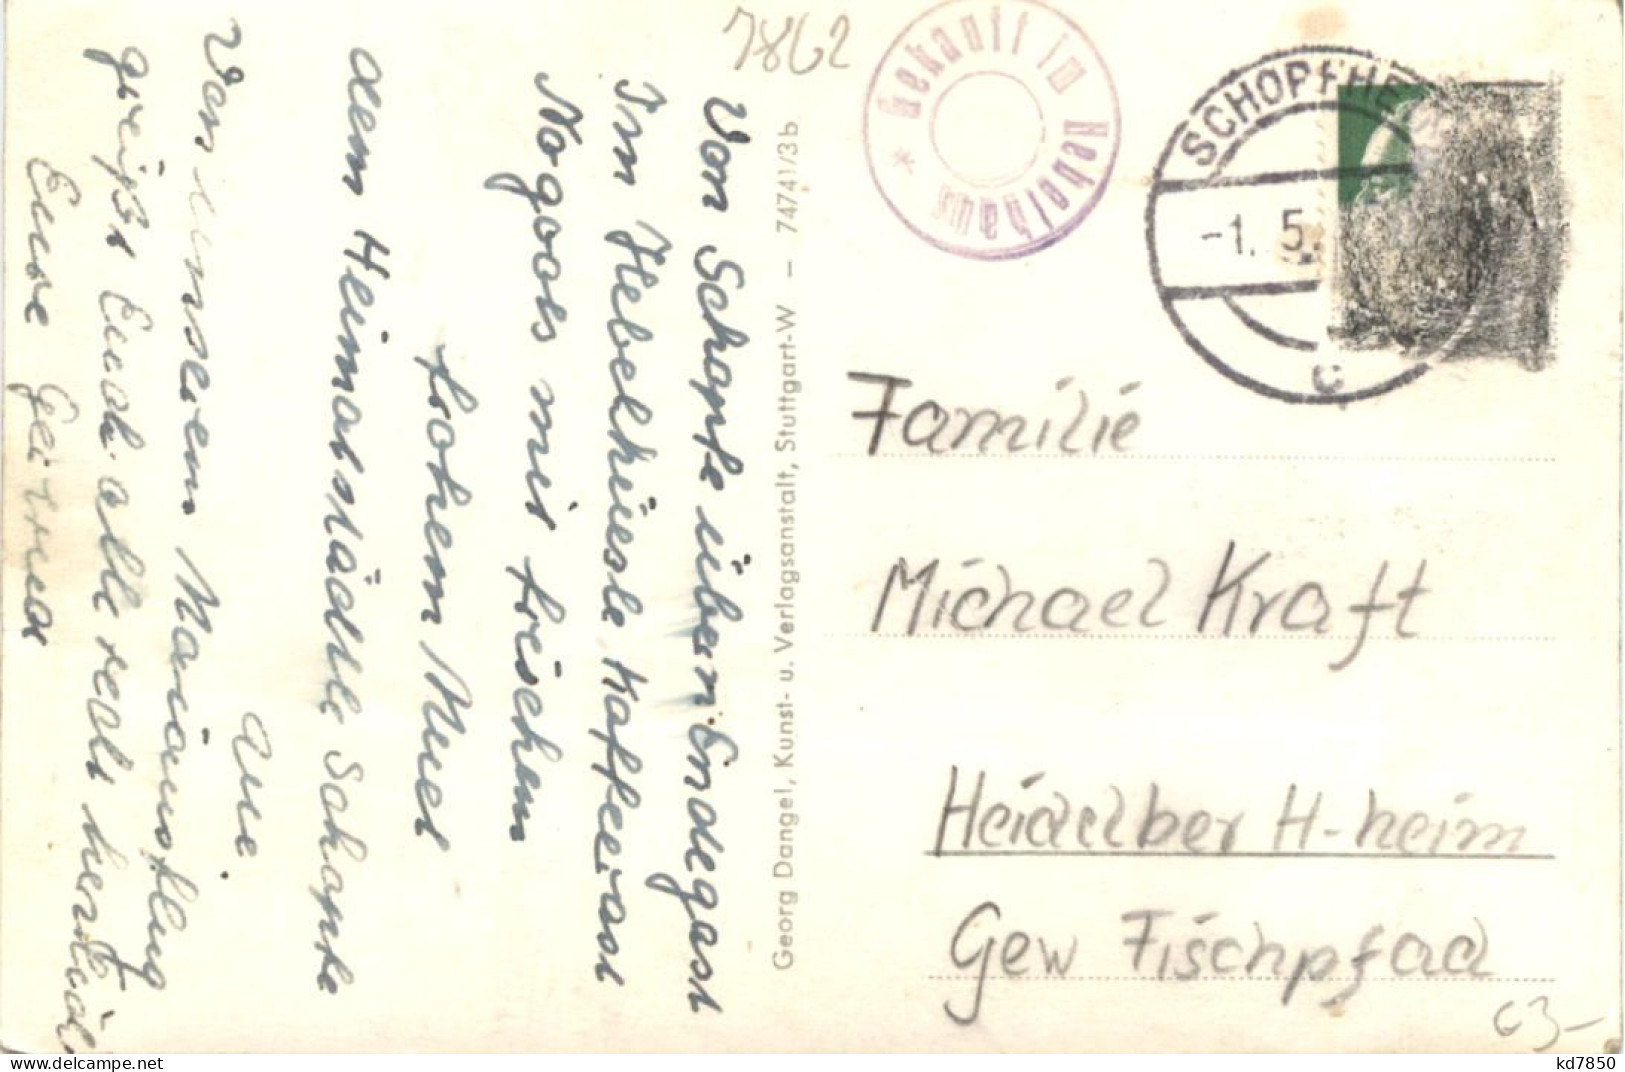 7862
Gekauft im Hebelhaus *
SCHOPFHE
-1. 5.
c
Von Schopfe übern Endegast
Im Hebelhüesle Kaffeerast
No goots mit frischem
frohem Muet
dem Heimatstädtle Schopfe
zue.
Von unserem Maiausflug
grüßt Euch alle recht herzlich
Eure Gertrud
Georg Dangel, Kunst- u. Verlagsanstalt, Stuttgart-W – 74741/3b
Familie
Michael Kraft
Heidelber H-heim
Gew Fischpfad
63-
kd7850